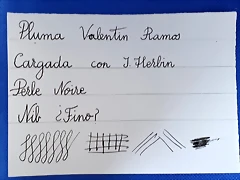 Pluma Valentin Ramos
Cargada con J. Herbin
Perle Noire
Nib ¿Fino?